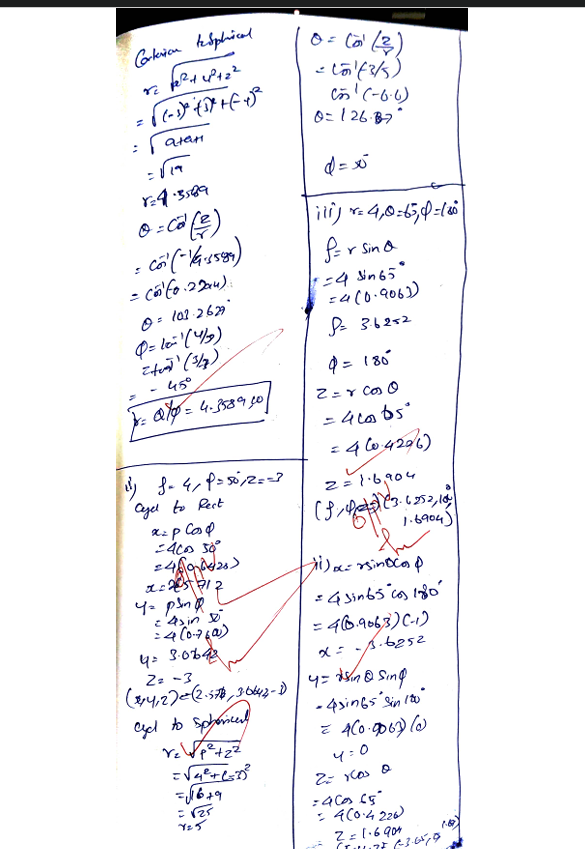 Cartesian to Spherical
r = √x²+y²+z²
= √(-3)²+(3)²+(-1)²
= √9+9+1
= √19
r = 4.3589
θ = Cos⁻¹(z/r)
= Cos⁻¹(-1/4.3589)
= Cos⁻¹(-0.2294)
θ = 103.262°
φ = tan⁻¹(y/x)
= tan⁻¹(3/-3)
= -45°
r = θ/φ = 4.3589,
ii) ρ = 4, φ = 50°, z = -3
Cycl to Rect
x = ρ Cos φ
= 4 Cos 50°
= 4(0.6428)
x = 2.5712
y = ρ sin φ
= 4 sin 50°
= 4(0.7660)
y = 3.0642
z = -3
(x,y,z) = (2.571, 3.0642, -3)
Cycl to Spherical
r = √ρ²+z²
= √4²+(-3)²
= √16+9
= √25
r = 5
θ = Cos⁻¹(z/r)
= Cos⁻¹(-3/5)
Cos⁻¹(-0.6)
θ = 126.87°
φ = 50°
iii) r = 4, θ = 65°, φ = 180°
ρ = r sin θ
= 4 sin 65°
= 4(0.9063)
ρ = 3.6252
φ = 180°
z = r cos θ
= 4 cos 65°
= 4(0.4226)
z = 1.6904
(ρ, φ, z) = (3.6252, 180°
1.6904)
ii) x = r sin θ cos φ
= 4 sin 65° cos 180°
= 4(0.9063)(-1)
x = -3.6252
y = r sin θ sin φ
= 4 sin 65° sin 180°
= 4(0.9063)(0)
y = 0
z = r cos θ
= 4 Cos 65°
= 4(0.4226)
z = 1.6904